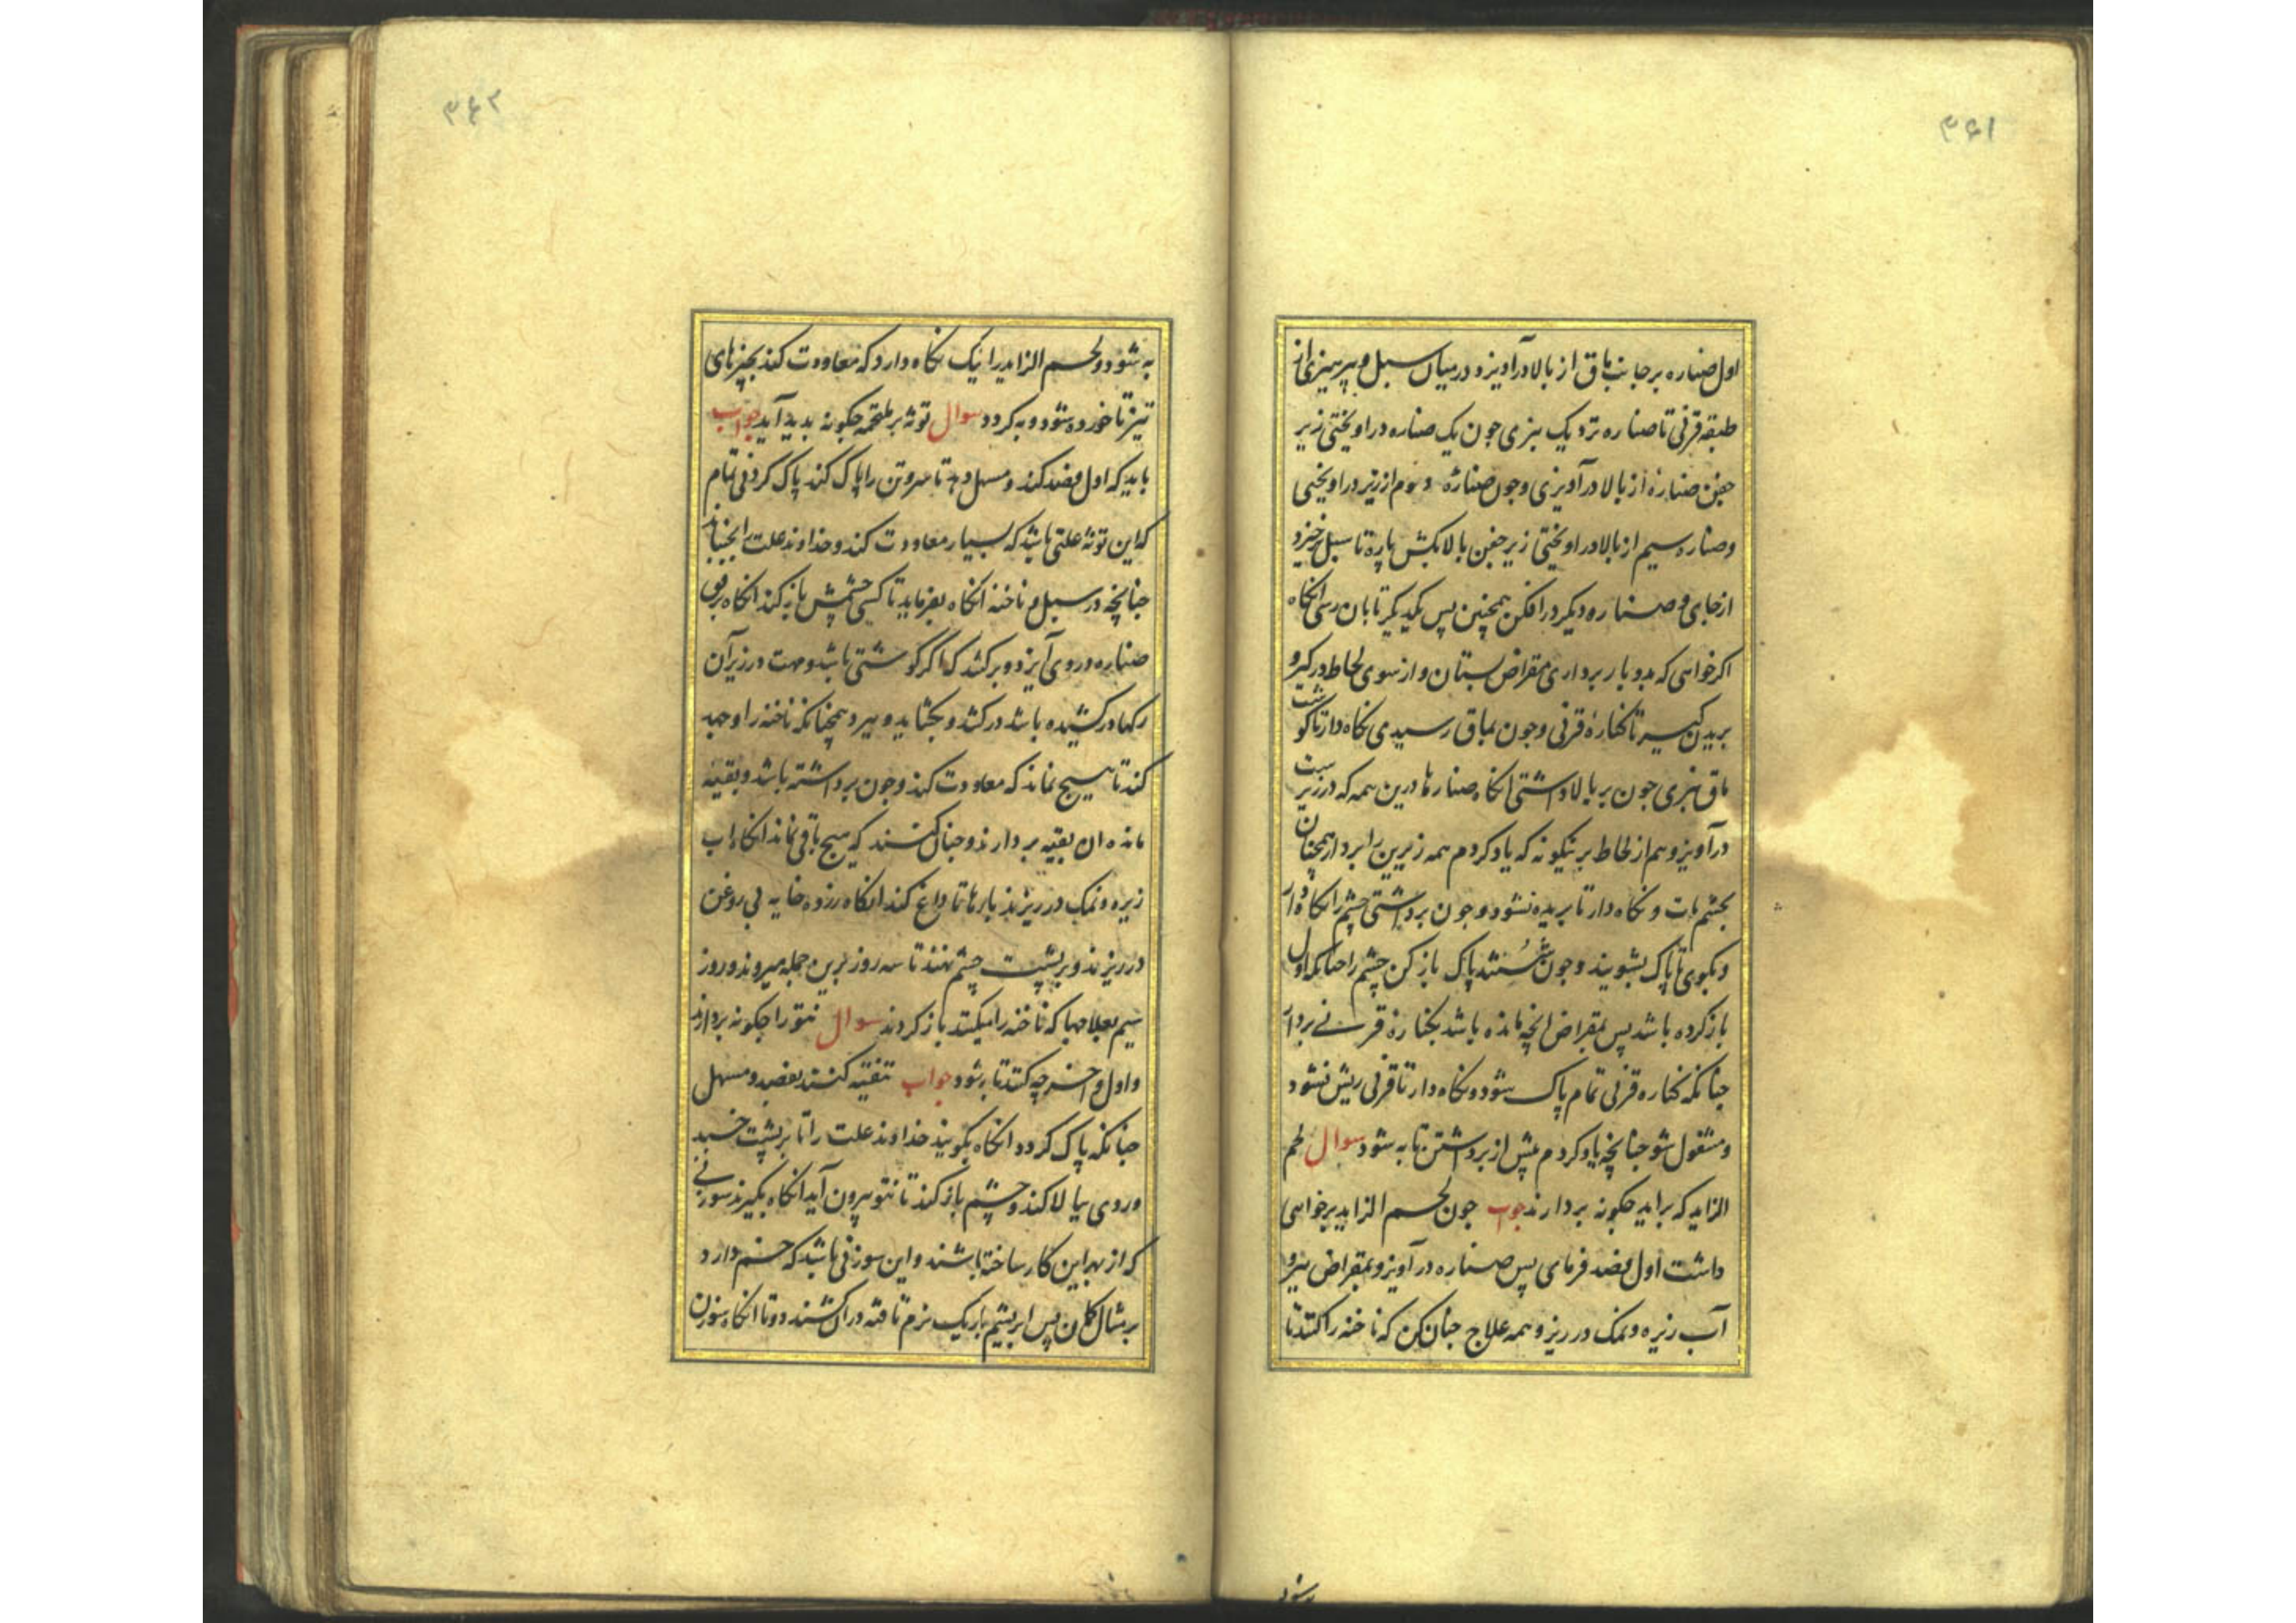 ۳۶۱
اول صناره بر جانب ماق از بالا درآویز و درمیان سبل و بپرهیزی از
طبقه قرنی تا صناره نزدیک نبری جون یک صناره دراویختی زیر
جفن صنارهٔ از بالا درآویزی وجون صنارهٔ دوم از زیر دراویختی
وصناره سیم از بالا دراویختی زیر جفن بالا بکش پارهٔ تا سبل برخیزد
ازجای و صناره دیکر درافکن همچنین پس یکدیکر تا بان رسی انکاه
اکر خواهی که بدو بار برداری مقراض بستان و از سوی لحاظ درکیر و
بریدن کیر تا کنارهٔ قرنی وجون بماق رسیدی نکاه دار تا کوشت
ماق نبری جون بر بالا داشتی انکاه صنارها درین همه که در زیرست
درآویز و هم از لحاظ برینکونه که یاد کردم همه زیرین را بردار همچنان
بجشم مات و نکاه دار تا بریده نشود و جون برداشتی چشم را نکاه دار
وبکوی تا پاک بشویند وجون شستند پاک باز کن چشم را جنانکه اول
باز کرده باشد پس بمقراض انچه مانده باشد بکنارهٔ قرنی بردار
جنانکه کناره قرنی تمام پاک شود و نکاه دار تا قرنی ریش نشود
ومشغول شو جنانچه یاد کردم پیش از برداشتن تا به شود سوال لحم
الزاید که براید جکونه بردارند جواب جون لحم الزاید برخواهی
داشت اول فصد فرمای پس صناره درآویز و بمقراض ببر و
آب زیره ونمک در ریز و همه علاج جنان کن که ناخنه را کنند تا
به شود
۳۶۲
به شود ولحم الزاید را نیک نکاه دارد که معاودت کند بچیزهای
تیز تا خورده شود و به کردد سوال توثه بر ملتحمه جکونه بدید آید جواب
باید که اول فصد کند و مسهل دهد تا سر و تن را پاک کند پاک کردنی تمام
که این توثه علتی باشد که بسیار معاودت کند و خداوند علت را بخسباند
جنانچه در سبل و ناخنه انکاه بفرماید تا کسی چشمش باز کند انکاه برفق
صناره در وی آیزد و برکشد که اکر کوشتی باشد وصت در زیر آن
رکها درکشیده باشد درکشد و بکشاید و ببرد همچنانکه ناخنه را و جهد
کند تا هیچ نماند که معاودت کند و جون برداشته باشد و بقیهٔ
مانده ان بقیه بردارند و جنان کنند که هیچ باقی نماند انکاه اب
زیره و نمک در ریزند بارها تا داغ کند انکاه زرده خایه بی روغن
در ریزند و بر پشت چشم نهند تا سه روز برین جمله میروند و روز
سیم بعلاجها که ناخنه را میکنند باز کردند سوال نتو را جکونه بردارند
و اول و اخر چه کنند تا به شود جواب تنقیه کنند بفصد و مسهل
جنانکه پاک کردد انکاه بکویند خداوند علت را تا بر پشت خسبد
وروی ببالا کند و چشم باز کند تا نتو بیرون آید انکاه بکیرند سوزنی
که از بهر این کار ساخته باشند و این سوزنی باشد که خم دارد
بر مثال کمان پس ابریشم باریک نرم تافته دران کشند دوتا انکاه سوزن